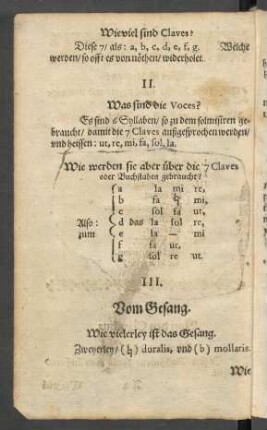 Wieviel sind Claves?
Diese 7/ als: a, b, c, d, e, f, g. Welche
werden/ so offt es von nöhten/ widerholet.
II.
Was sind die Voces?
Es sind 6 Syllaben/ so zu dem solmisiren ge-
braucht/ damit die 7 Claves außgesprochen werden/
vnd heissen: ut, re, mi, fa, sol, la.
Wie werden sie aber über die 7 Claves
oder Buchstaben gebraucht?
a la mi re,
b fa ♮ mi,
c sol fa ut,
Also: d das la sol re,
zum e la – mi
f fa ut,
g sol re ut.
III.
Vom Gesang.
Wie vielerley ist das Gesang.
Zweyerley/ (♮) duralis, vnd (b) mollaris.
Wie